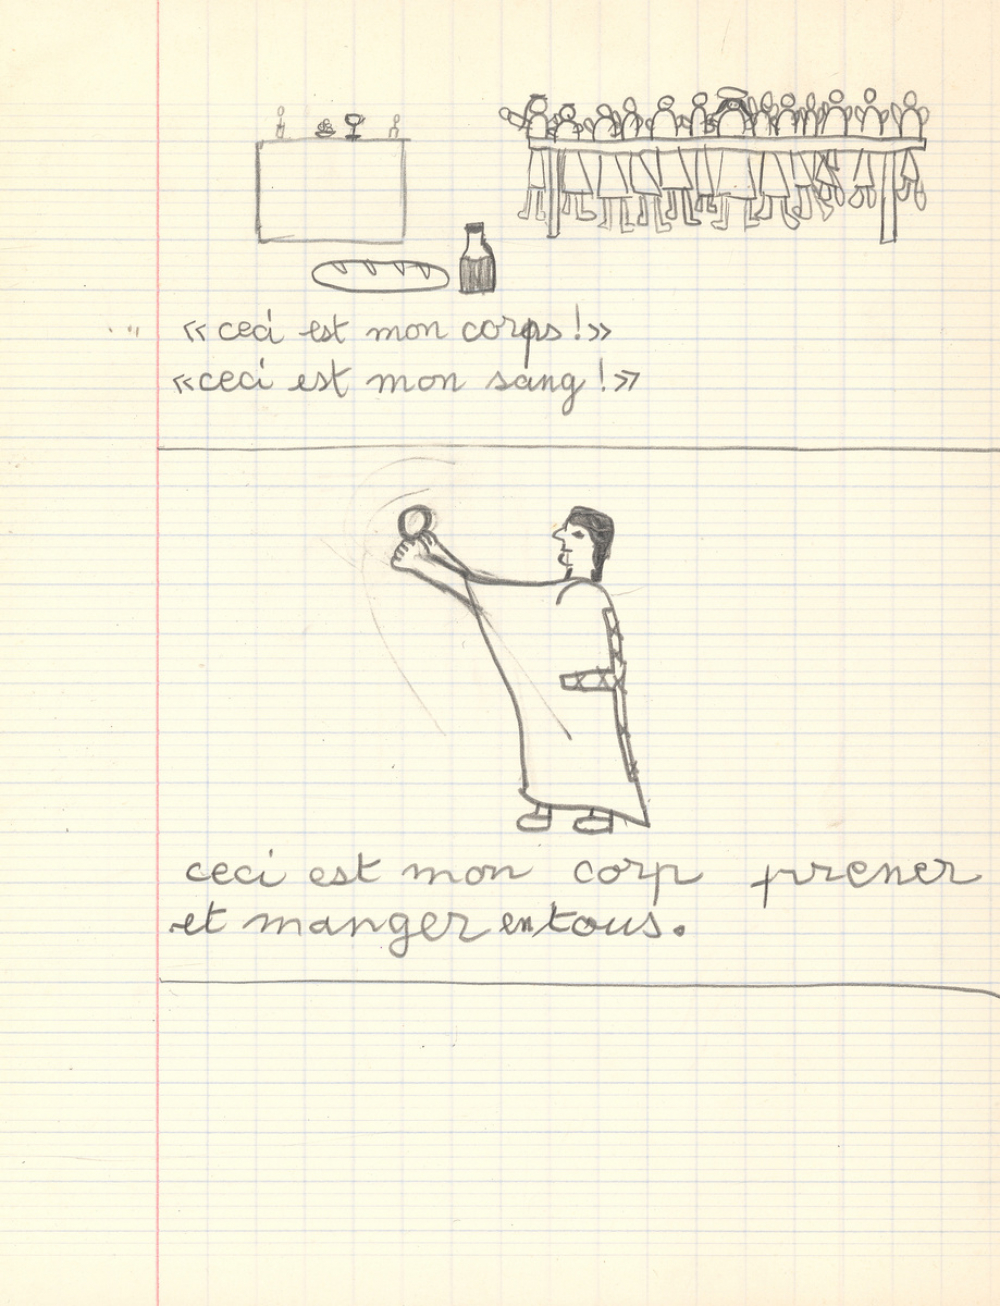 «ceci est mon corps!»
«ceci est mon sang!»
ceci est mon corp prener
et manger en tous.